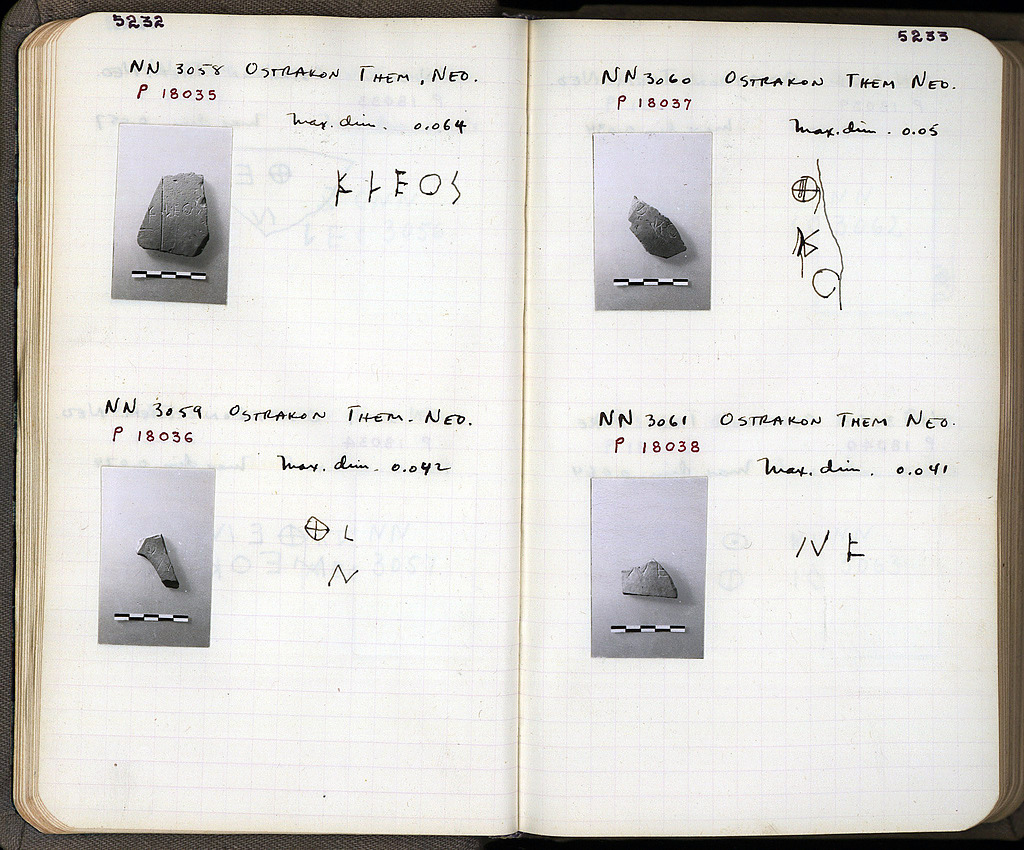 5232
NN 3058 OSTRAKON THEM. NEO.
P 18035
Max. dim. 0.064
KLEOS
NN 3059 OSTRAKON THEM. NEO.
P 18036
Max. dim. 0.042
⊕ L
N
5233
NN 3060 OSTRAKON THEM NEO.
P 18037
Max. dim. 0.05
⊕
K
O
NN 3061 OSTRAKON THEM NEO.
P 18038
Max. dim. 0.041
N E